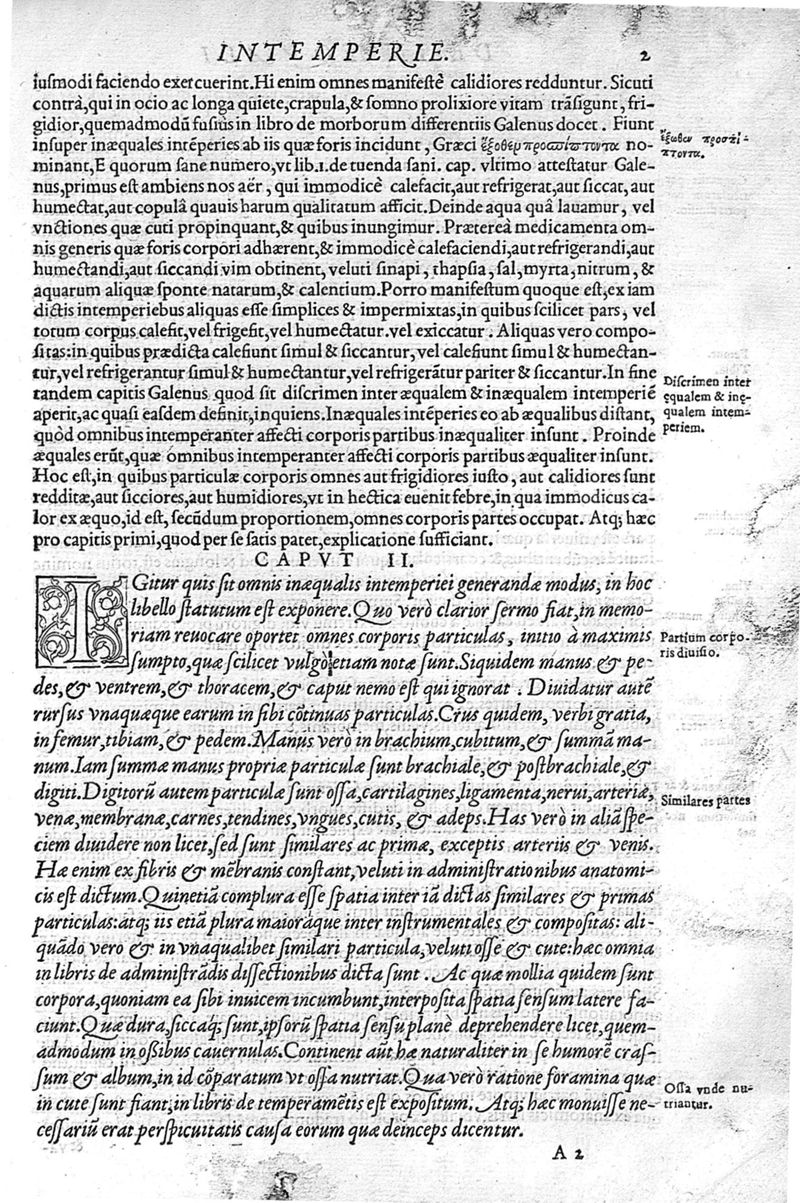 INTEMPERIE. 2
iusmodi faciendo exercuerint. Hi enim omnes manifestè calidiores redduntur. Sicuti
contrà, qui in ocio ac longa quiete, crapula, & somno prolixiore vitam trãsigunt, fri-
gidior, quemadmodũ fusiùs in libro de morborum differentiis Galenus docet. Fiunt
insuper inæquales intẽperies ab iis quæ foris incidunt, Græci ἔξοθεν προσπίπτοντα no-
minant, E quorum sane numero, vt lib. 1. de tuenda sani. cap. vltimo attestatur Gale-
nus, primus est ambiens nos aër, qui immodicè calefacit, aut refrigerat, aut siccat, aut
humectat, aut copulâ quauis harum qualitatum afficit. Deinde aqua quâ lauamur, vel
vnctiones quæ cuti propinquant, & quibus inungimur. Prætereà medicamenta om-
nis generis quæ foris corpori adhærent, & immodicè calefaciendi, aut refrigerandi, aut
humectandi, aut siccandi vim obtinent, veluti sinapi, thapsia, sal, myrta, nitrum, &
aquarum aliquæ sponte natarum, & calentium. Porro manifestum quoque est, ex iam
dictis intemperiebus aliquas esse simplices & impermixtas, in quibus scilicet pars, vel
totum corpus calefit, vel frigefit, vel humectatur. vel exiccatur. Aliquas vero compo-
sitas: in quibus prædicta calefiunt simul & siccantur, vel calefiunt simul & humectan-
tur, vel refrigerantur simul & humectantur, vel refrigerãtur pariter & siccantur. In fine
tandem capitis Galenus quod sit discrimen inter æqualem & inæqualem intemperiẽ
aperit, ac quasi easdem definit, inquiens. Inæquales intẽperies eo ab æqualibus distant,
quòd omnibus intemperanter affecti corporis partibus inæqualiter insunt. Proinde
æquales erũt, quæ omnibus intemperanter affecti corporis partibus æqualiter insunt.
Hoc est, in quibus particulæ corporis omnes aut frigidiores iusto, aut calidiores sunt
redditæ, aut sicciores, aut humidiores, vt in hectica euenit febre, in qua immodicus ca-
lor ex æquo, id est, secũdum proportionem, omnes corporis partes occupat. Atq; hæc
pro capitis primi, quod per se satis patet, explicatione sufficiant.
ἔξωθεν προσπί-
πτοντα.
Discrimen inter
ęqualem & inę-
qualem intem-
periem.
CAPVT II.
IGitur quis sit omnis inæqualis intemperiei generandæ modus, in hoc
libello statutum est exponere. Quo verò clarior sermo fiat, in memo-
riam reuocare oportet omnes corporis particulas, initio à maximis
sumpto, quæ scilicet vulgò etiam notæ sunt. Siquidem manus & pe-
des, & ventrem, & thoracem, & caput nemo est qui ignorat. Diuidatur autẽ
rursus vnaquæque earum in sibi cõtinuas particulas. Crus quidem, verbi gratia,
in femur, tibiam, & pedem. Manus verò in brachium, cubitum, & summã ma-
num. Iam summæ manus propriæ particulæ sunt brachiale, & postbrachiale, &
digiti. Digitorũ autem particulæ sunt ossa, cartilagines, ligamenta, nerui, arteriæ,
venæ, membranæ, carnes, tendines, vngues, cutis, & adeps. Has verò in aliã spe-
ciem diuidere non licet, sed sunt similares ac primæ, exceptis arteriis & venis.
Hæ enim ex fibris & mẽbranis constant, veluti in administrationibus anatomi-
cis est dictum. Quinetiã complura esse spatia inter iã dictas similares & primas
particulas: atq; iis etiã plura maioráque inter instrumentales & compositas: ali-
quãdo vero & in vnaqualibet similari particula, veluti osse & cute: hæc omnia
in libris de administrãdis dissectionibus dicta sunt. Ac quæ mollia quidem sunt
corpora, quoniam ea sibi inuicem incumbunt, interposita spatia sensum latere fa-
ciunt. Quæ dura, siccaq; sunt, ipsorũ spatia sensu planè deprehendere licet, quem-
admodum in ossibus cauernulas. Continent aũt hæ naturaliter in se humorẽ cras-
sum & album, in id cõparatum vt ossa nutriat. Qua verò ratione foramina quæ
in cute sunt fiant, in libris de temperamẽtis est expositum. Atq; hæc monuisse ne-
cessariũ erat perspicuitatis causa eorum quæ deinceps dicentur.
Partium corpo-
ris diuisio.
Similares partes
Ossa vnde nu-
triantur.
A 2